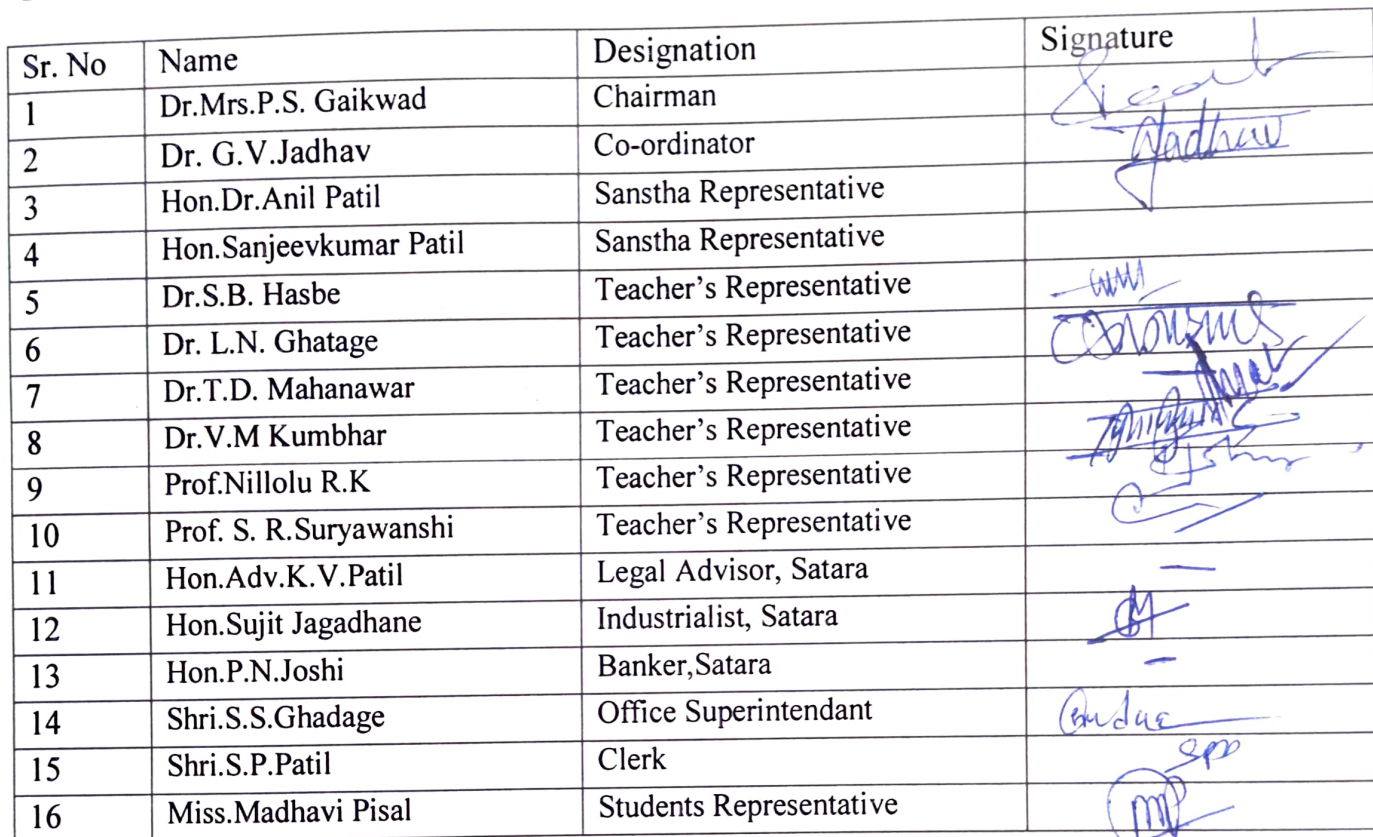 Sr. No Name Designation Signature
1 Dr.Mrs.P.S. Gaikwad Chairman
2 Dr. G.V.Jadhav Co-ordinator Jadhav
3 Hon.Dr.Anil Patil Sanstha Representative
4 Hon.Sanjeevkumar Patil Sanstha Representative
5 Dr.S.B. Hasbe Teacher's Representative
6 Dr. L.N. Ghatage Teacher's Representative
7 Dr.T.D. Mahanawar Teacher's Representative
8 Dr.V.M Kumbhar Teacher's Representative
9 Prof.Nillolu R.K Teacher's Representative
10 Prof. S. R.Suryawanshi Teacher's Representative
11 Hon.Adv.K.V.Patil Legal Advisor, Satara —
12 Hon.Sujit Jagadhane Industrialist, Satara
13 Hon.P.N.Joshi Banker,Satara —
14 Shri.S.S.Ghadage Office Superintendant
15 Shri.S.P.Patil Clerk
16 Miss.Madhavi Pisal Students Representative